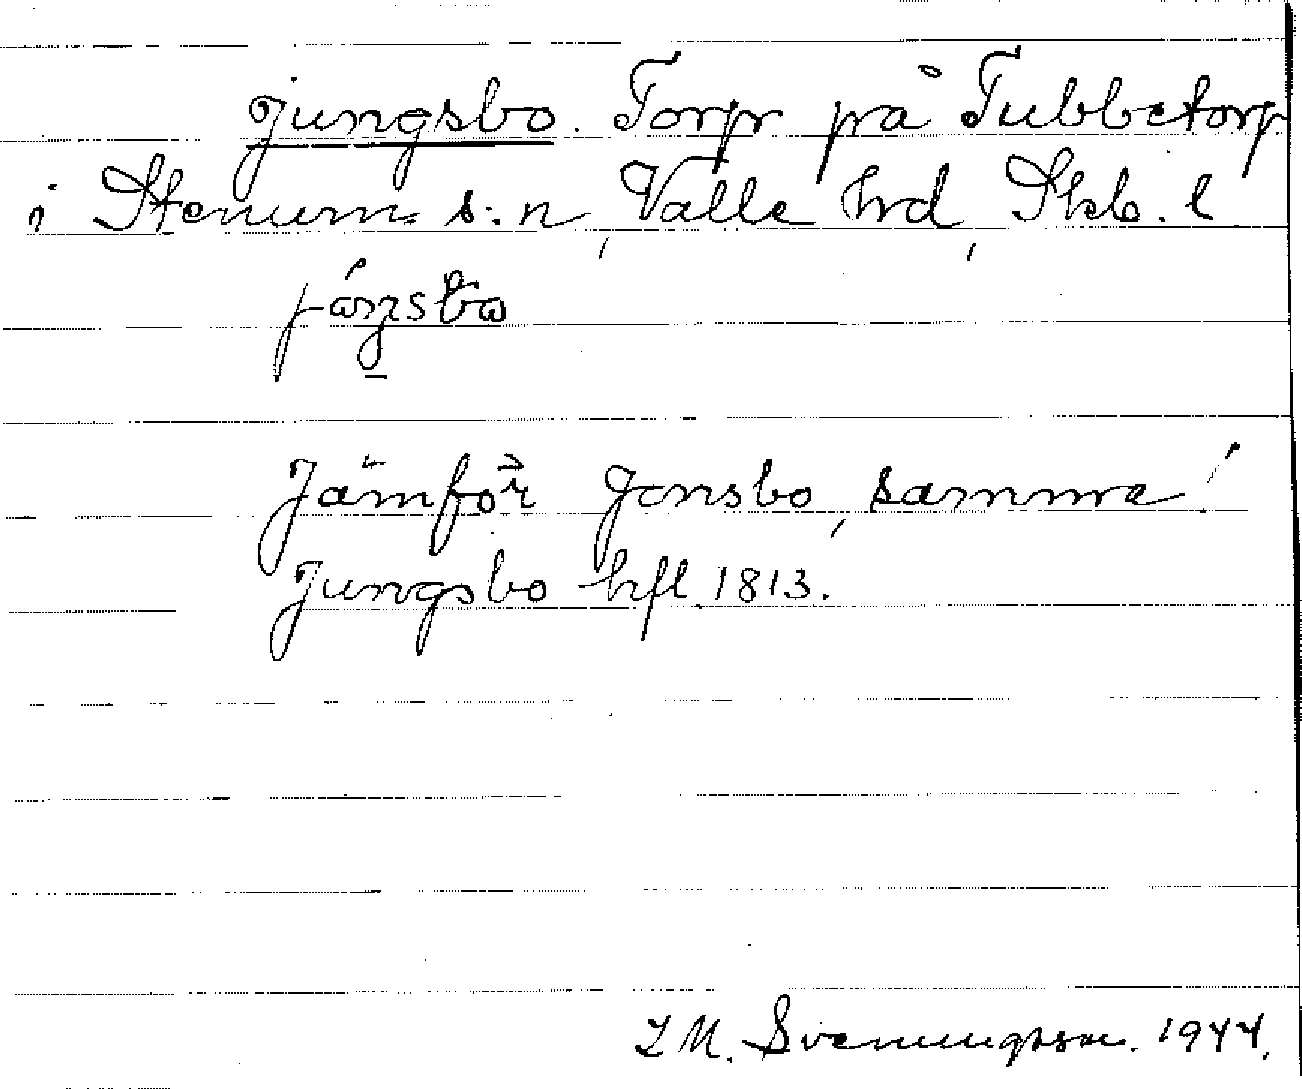 Jungsbo. Torp på Tubbetorp
i Stenum s:n, Valle hrd, Skb. l
Jämför Jonsbo, samma!
Jungsbo hfl 1813.
Svenungsson. 1944.